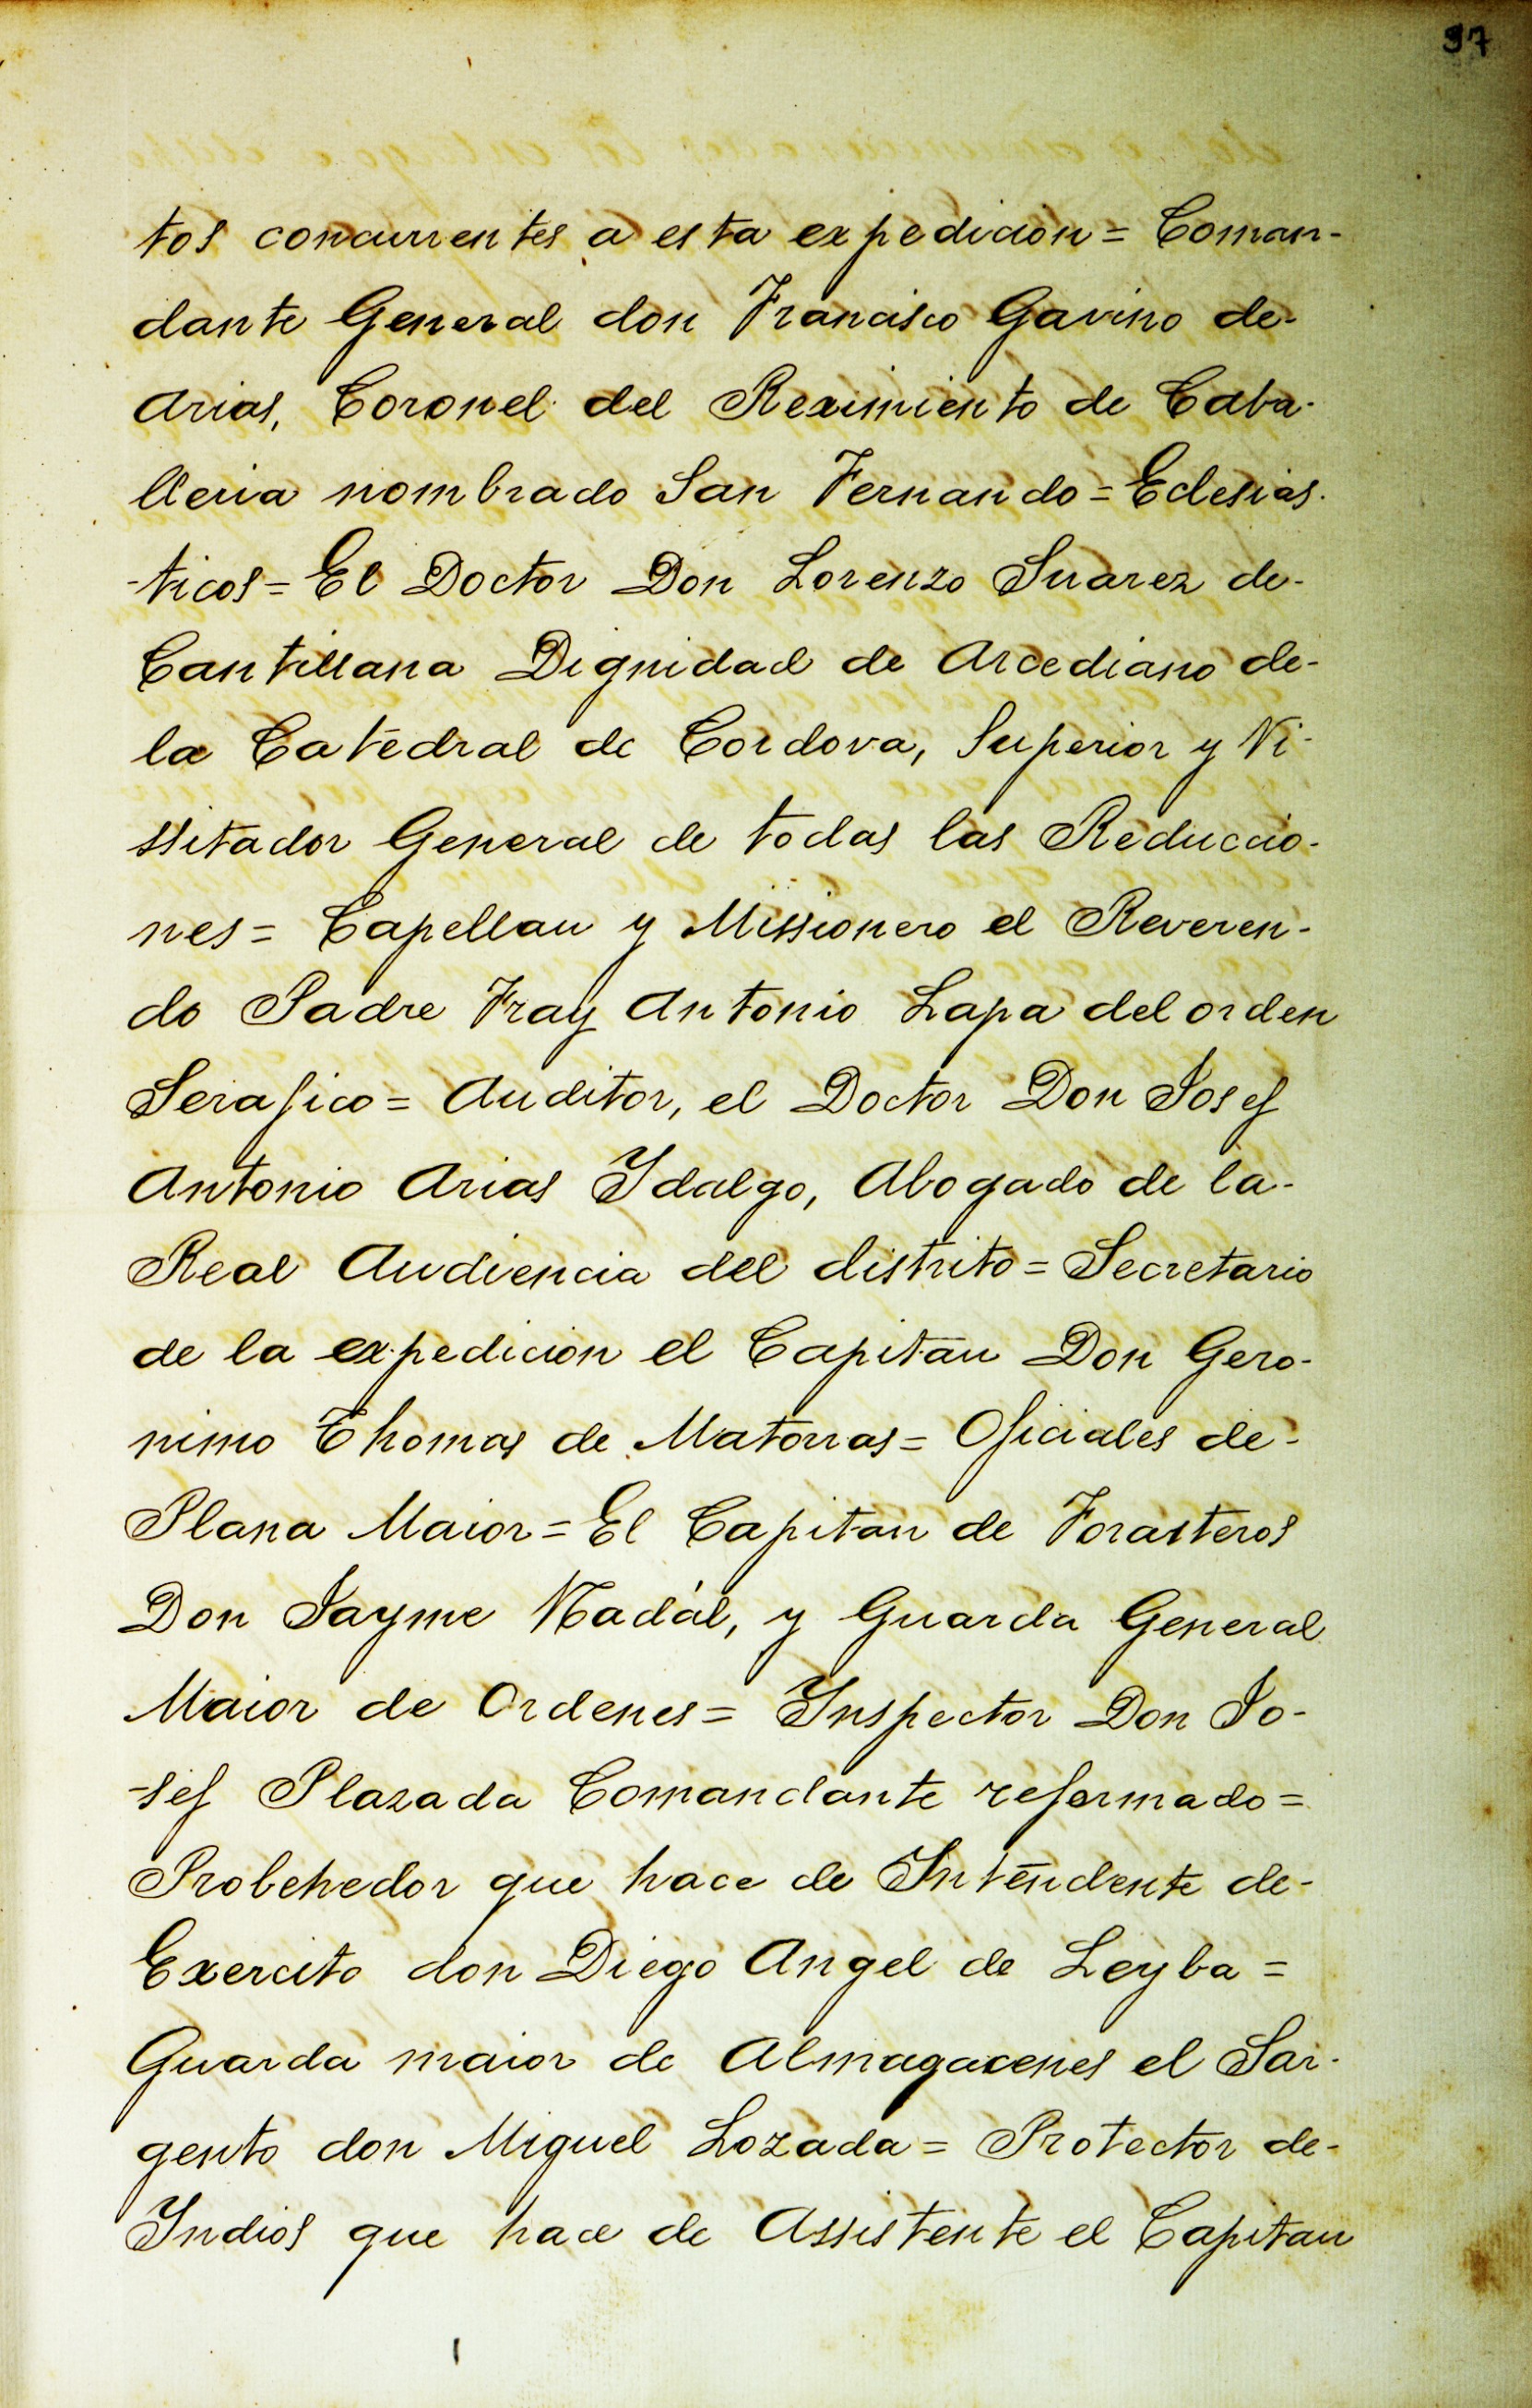 97
tos concurrentes a esta expedición = Coman-
dante General don Francisco Gavino de-
Arias, Coronel del Reximiento de Caba-
lleria nombrado San Fernando = Eclesias-
-ticos = El Doctor Don Lorenzo Suarez de-
Cantillana Dignidad de Arcediano de-
la Catedral de Cordova, Superior y Vi-
ssitador General de todas las Reduccio-
nes = Capellan y Missionero el Reveren-
do Padre Fray Antonio Lapa del orden
Serafico = Auditor, el Doctor Don Josef
Antonio Arias Ydalgo, Abogado de la-
Real Audiencia del distrito = Secretario
de la expedicion el Capitan Don Gero-
nimo Thomas de Matorras = Oficiales de-
Plana Maior = El Capitan de Forasteros
Don Jayme Nadál, y Guarda General
Maior de Ordenes = Ynspector Don Jo-
-sef Plazada Comandante reformado =
Probehedor que hace de Intendente de-
Exercito don Diego Angel de Leyba =
Guarda maior de Almagacenes el Sar-
gento don Miguel Lozada = Protector de-
Yndios que hace de Assistente el Capitan